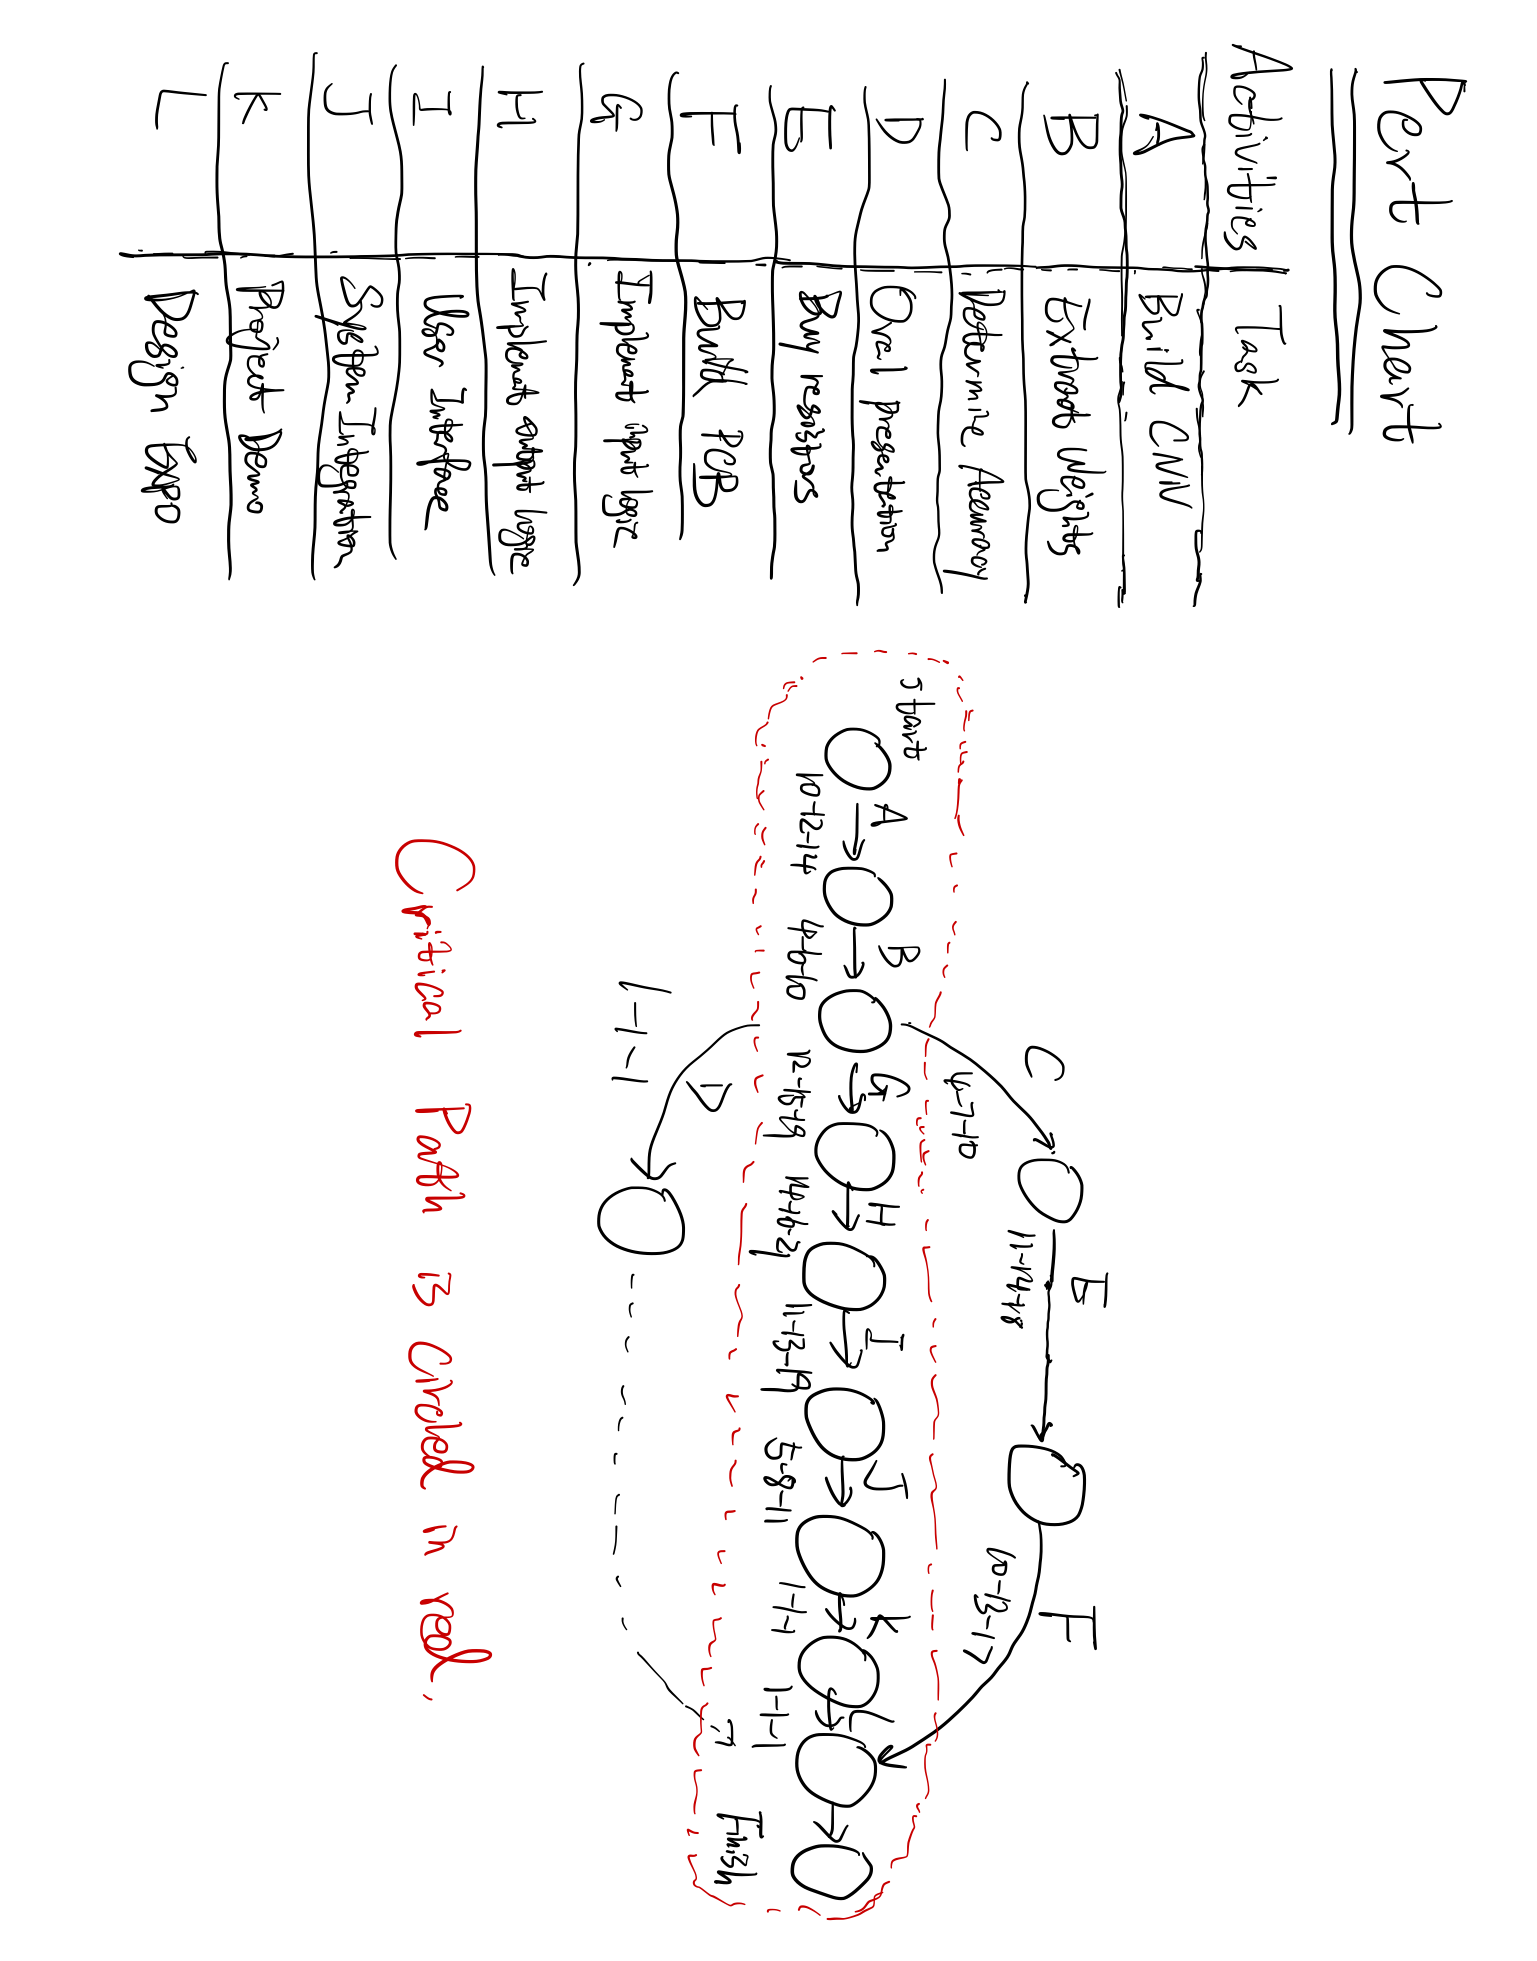 Pert Chart
Activities Task
A Build CNN
B Extract Weights
C Determine Accuracy
D Oral presentation
E Buy resistors
F Build PCB
G Implement input logic
H Implement output logic
I User Interface
J System Integration
K Project Demo
L Design Expo
C
4-7-10
E
11-14-18
F
10-13-17
start
A
10-12-14
B
4-6-10
G
12-15-19
H
14-16-21
I
11-13-19
J
5-8-11
K
1-1-1
L
1-1-1
Finish
D
1-1-1
Critical Path is Circled in red.